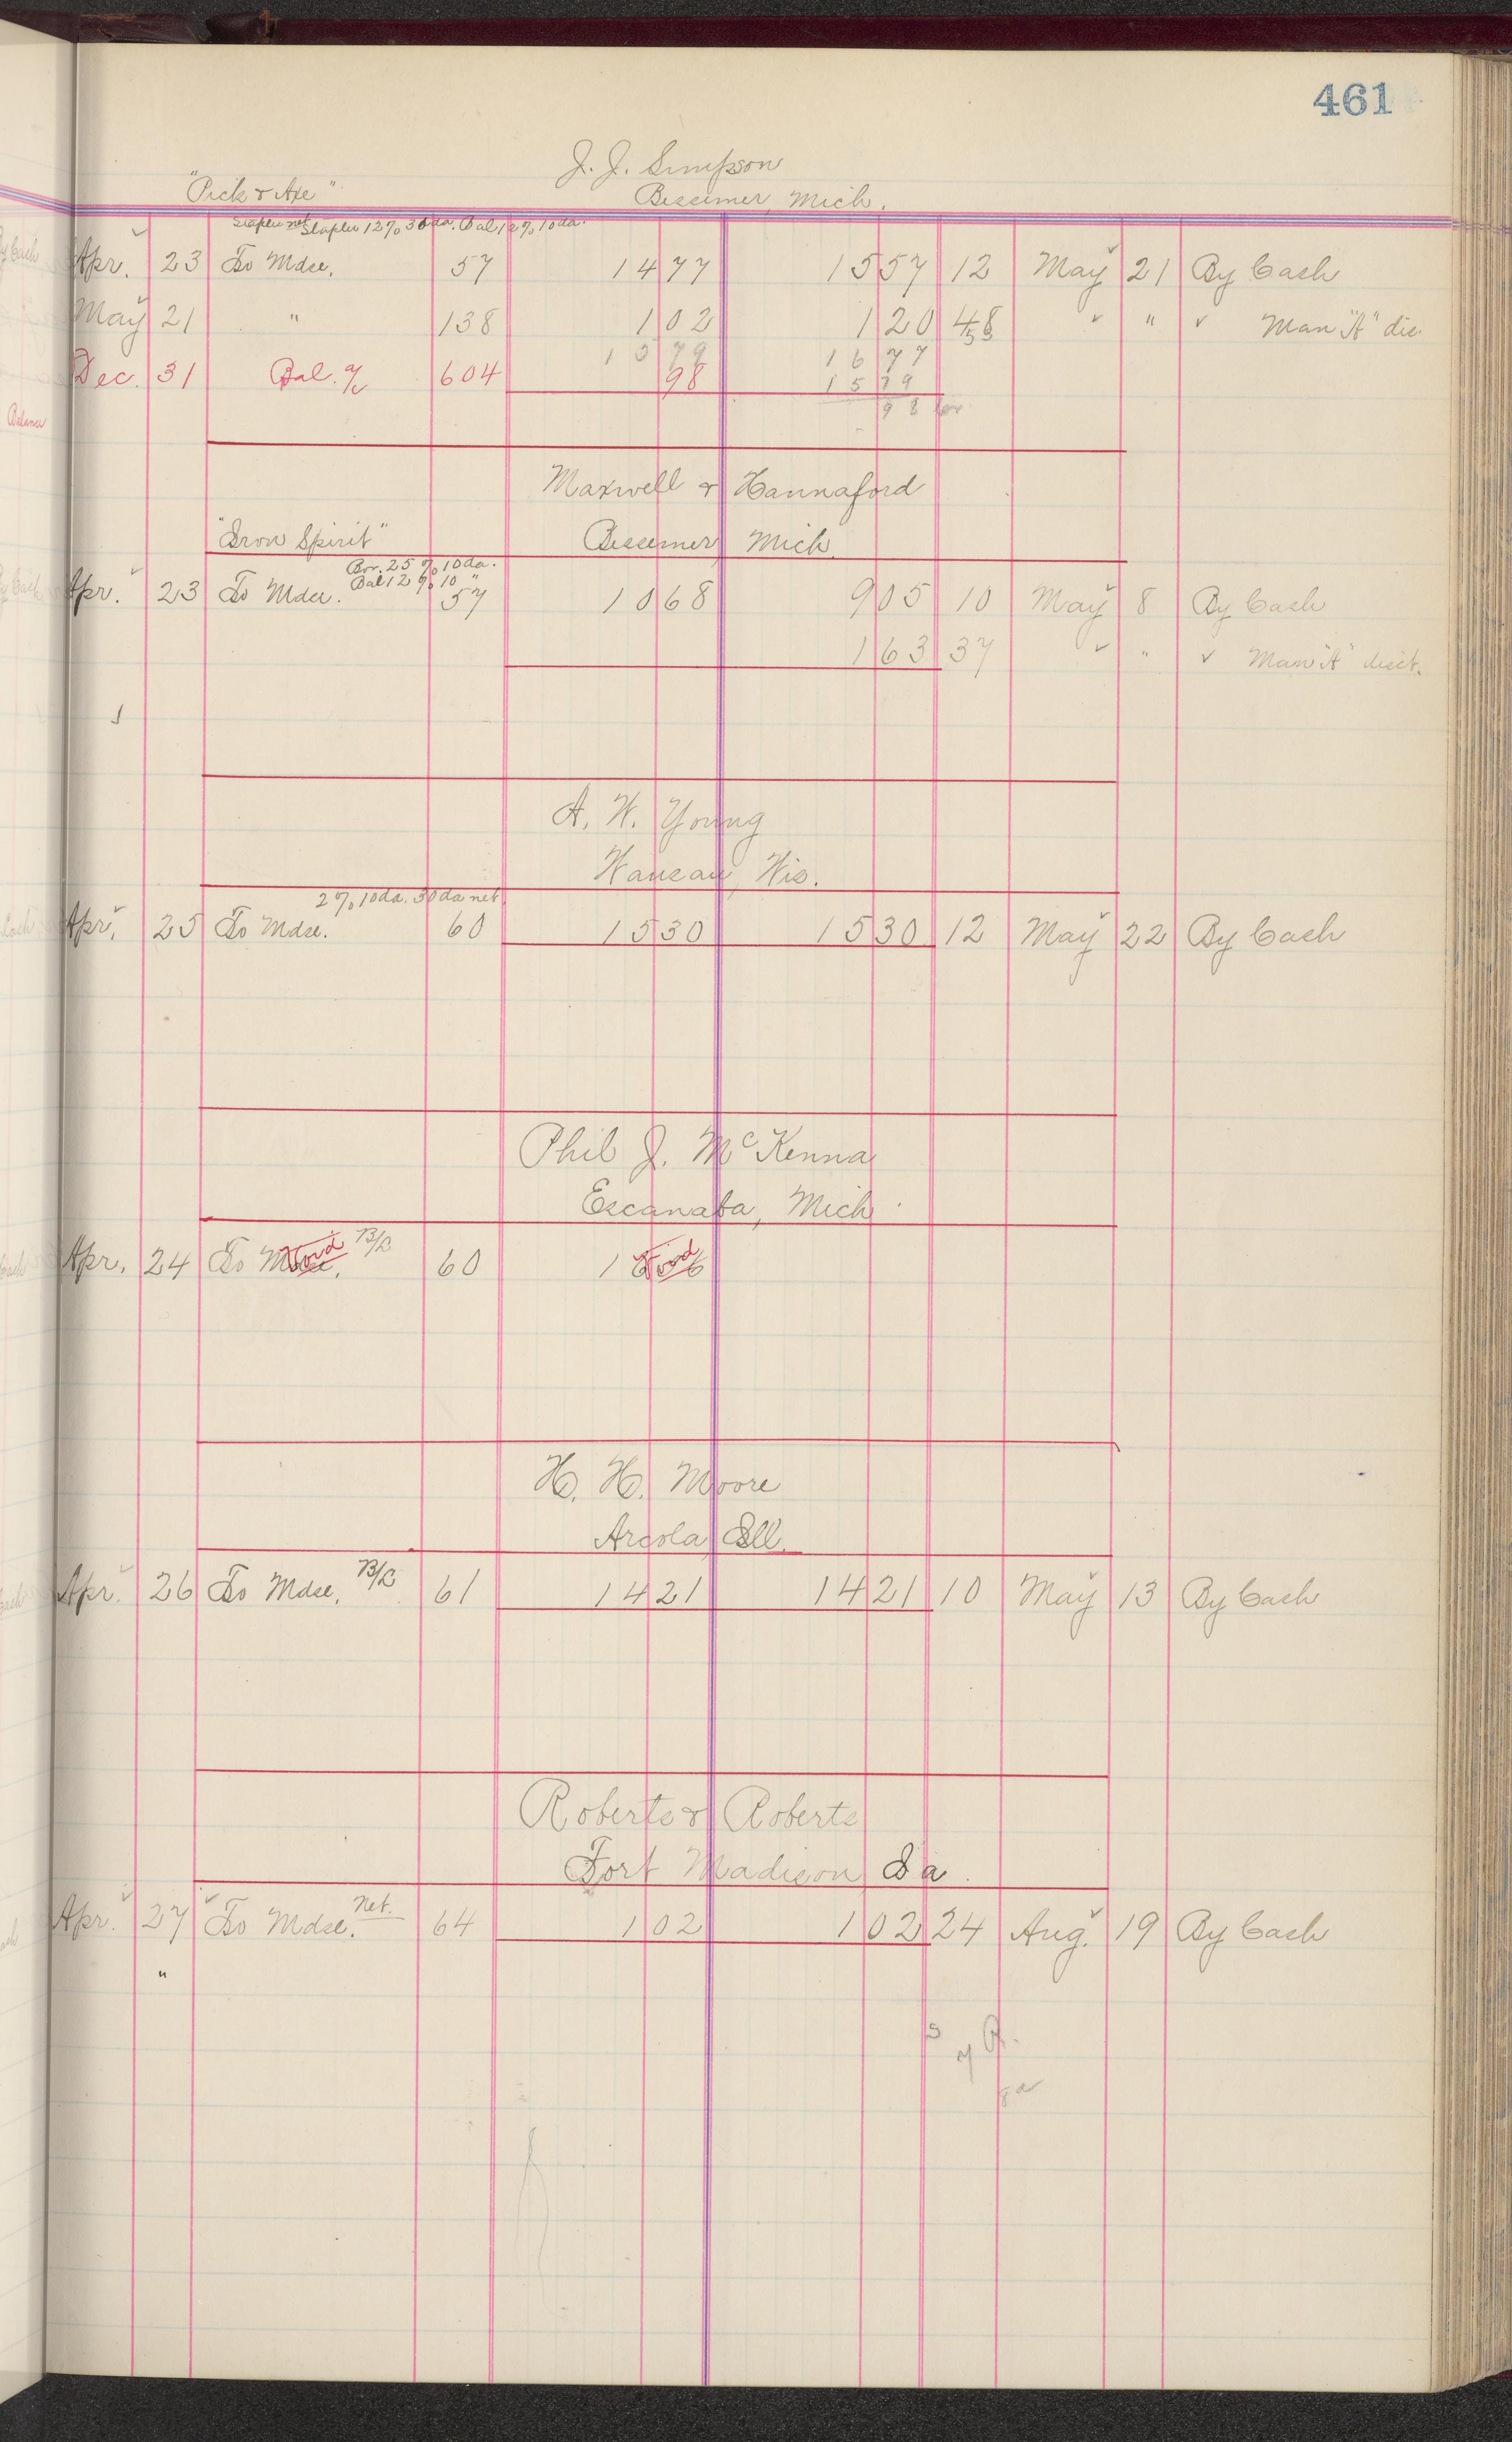 461
J. J. Simpson
"Pick & Axe" Bessemer, Mich.
Staples net Staples 12% 30 da. Bal 12% 10 da.
Apr. 23 To Mdse. 57 14 77 15 57 12 May 21 By Cash
May 21 " 138 1 02 1 20 48 " " " Man "A" dis.
15 79 16 77
Dec. 31 Bal. a/c 604 98 15 79
98
Maxwell & Hannaford
"Iron Spirit" Bessemer, Mich.
25% 10 da.
Bal 12% 10 "
Apr. 23 To Mdse. 57 10 68 9 05 10 May 8 By Cash
1 63 37 " " " Man "A" disct.
A. W. Young
Wausau, Wis.
2% 10 da. 30 da net
Apr. 25 To Mdse. 60 15 30 15 30 12 May 22 By Cash
Phil J. McKenna
Escanaba, Mich.
Apr. 24 To Mdse. Void B/L 60 Void
H. H. Moore
Arcola, Ill.
Apr. 26 To Mdse. B/L 61 14 21 14 21 10 May 13 By Cash
Roberts & Roberts
Fort Madison, Ia.
Apr. 27 To Mdse. Net. 64 1 02 1 02 24 Aug. 19 By Cash
"